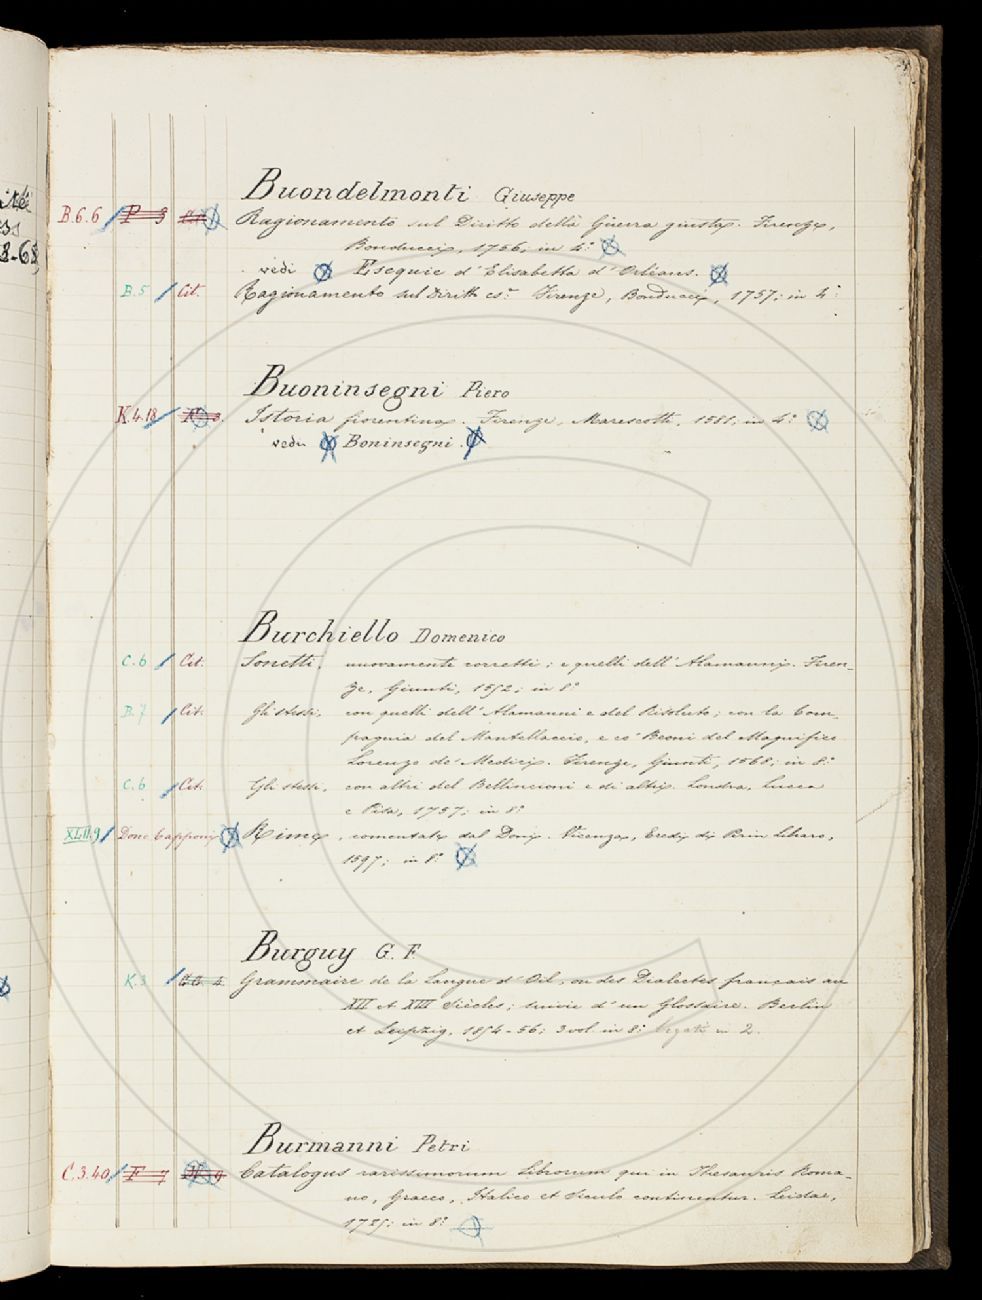 Buondelmonti Giuseppe
B.6.6 P 3 Ragionamento sul Diritto della Guerra giusta. Firenze,
Bonducci, 1756, in 4.º
vedi Esequie d'Elisabetta d'Orleans.
B.5 Cit. Ragionamento sul Diritto es.r Firenze, Bonducci, 1757; in 4.º
Buoninsegni Piero
K.4.18 Istoria fiorentina. Firenze, Marescotti, 1581; in 4.º
vedi Boninsegni.
Burchiello Domenico
C.6 Cit. Sonetti, nuovamente corretti; e quelli dell'Alamanni. Firen-
ze, Giunti, 1552; in 8.º
B.7 Cit. Gli stessi, con quelli dell'Alamanni e del Risoluto; con la Com-
pagnia del Mantellaccio, e co' Beoni del Magnifico
Lorenzo de' Medici. Firenze, Giunti, 1568; in 8.º
C.6 Cit. Gli stessi, con altri del Bellincioni e di altri. Londra, Lucca
e Pisa, 1757; in 8.º
XLII.9 Dono Capponi Rime, comentate dal Doni. Vicenza, Eredi di Perin Libraro,
1597; in 8.º
Burguy G. F
K.3 Grammaire de la Langue d'Oil, ou des Dialectes français au
XII et XIII Siècles; suivie d'un Glossaire. Berlin
et Leipzig, 1854-56; 3 vol. in 8.º legati in 2.
Burmanni Petri
C.3.40 F 7 Catalogus rarissimorum Librorum qui in Thesauris Roma-
no, Graeco, Italico et Siculo continentur. Leidae,
1725; in 8.º